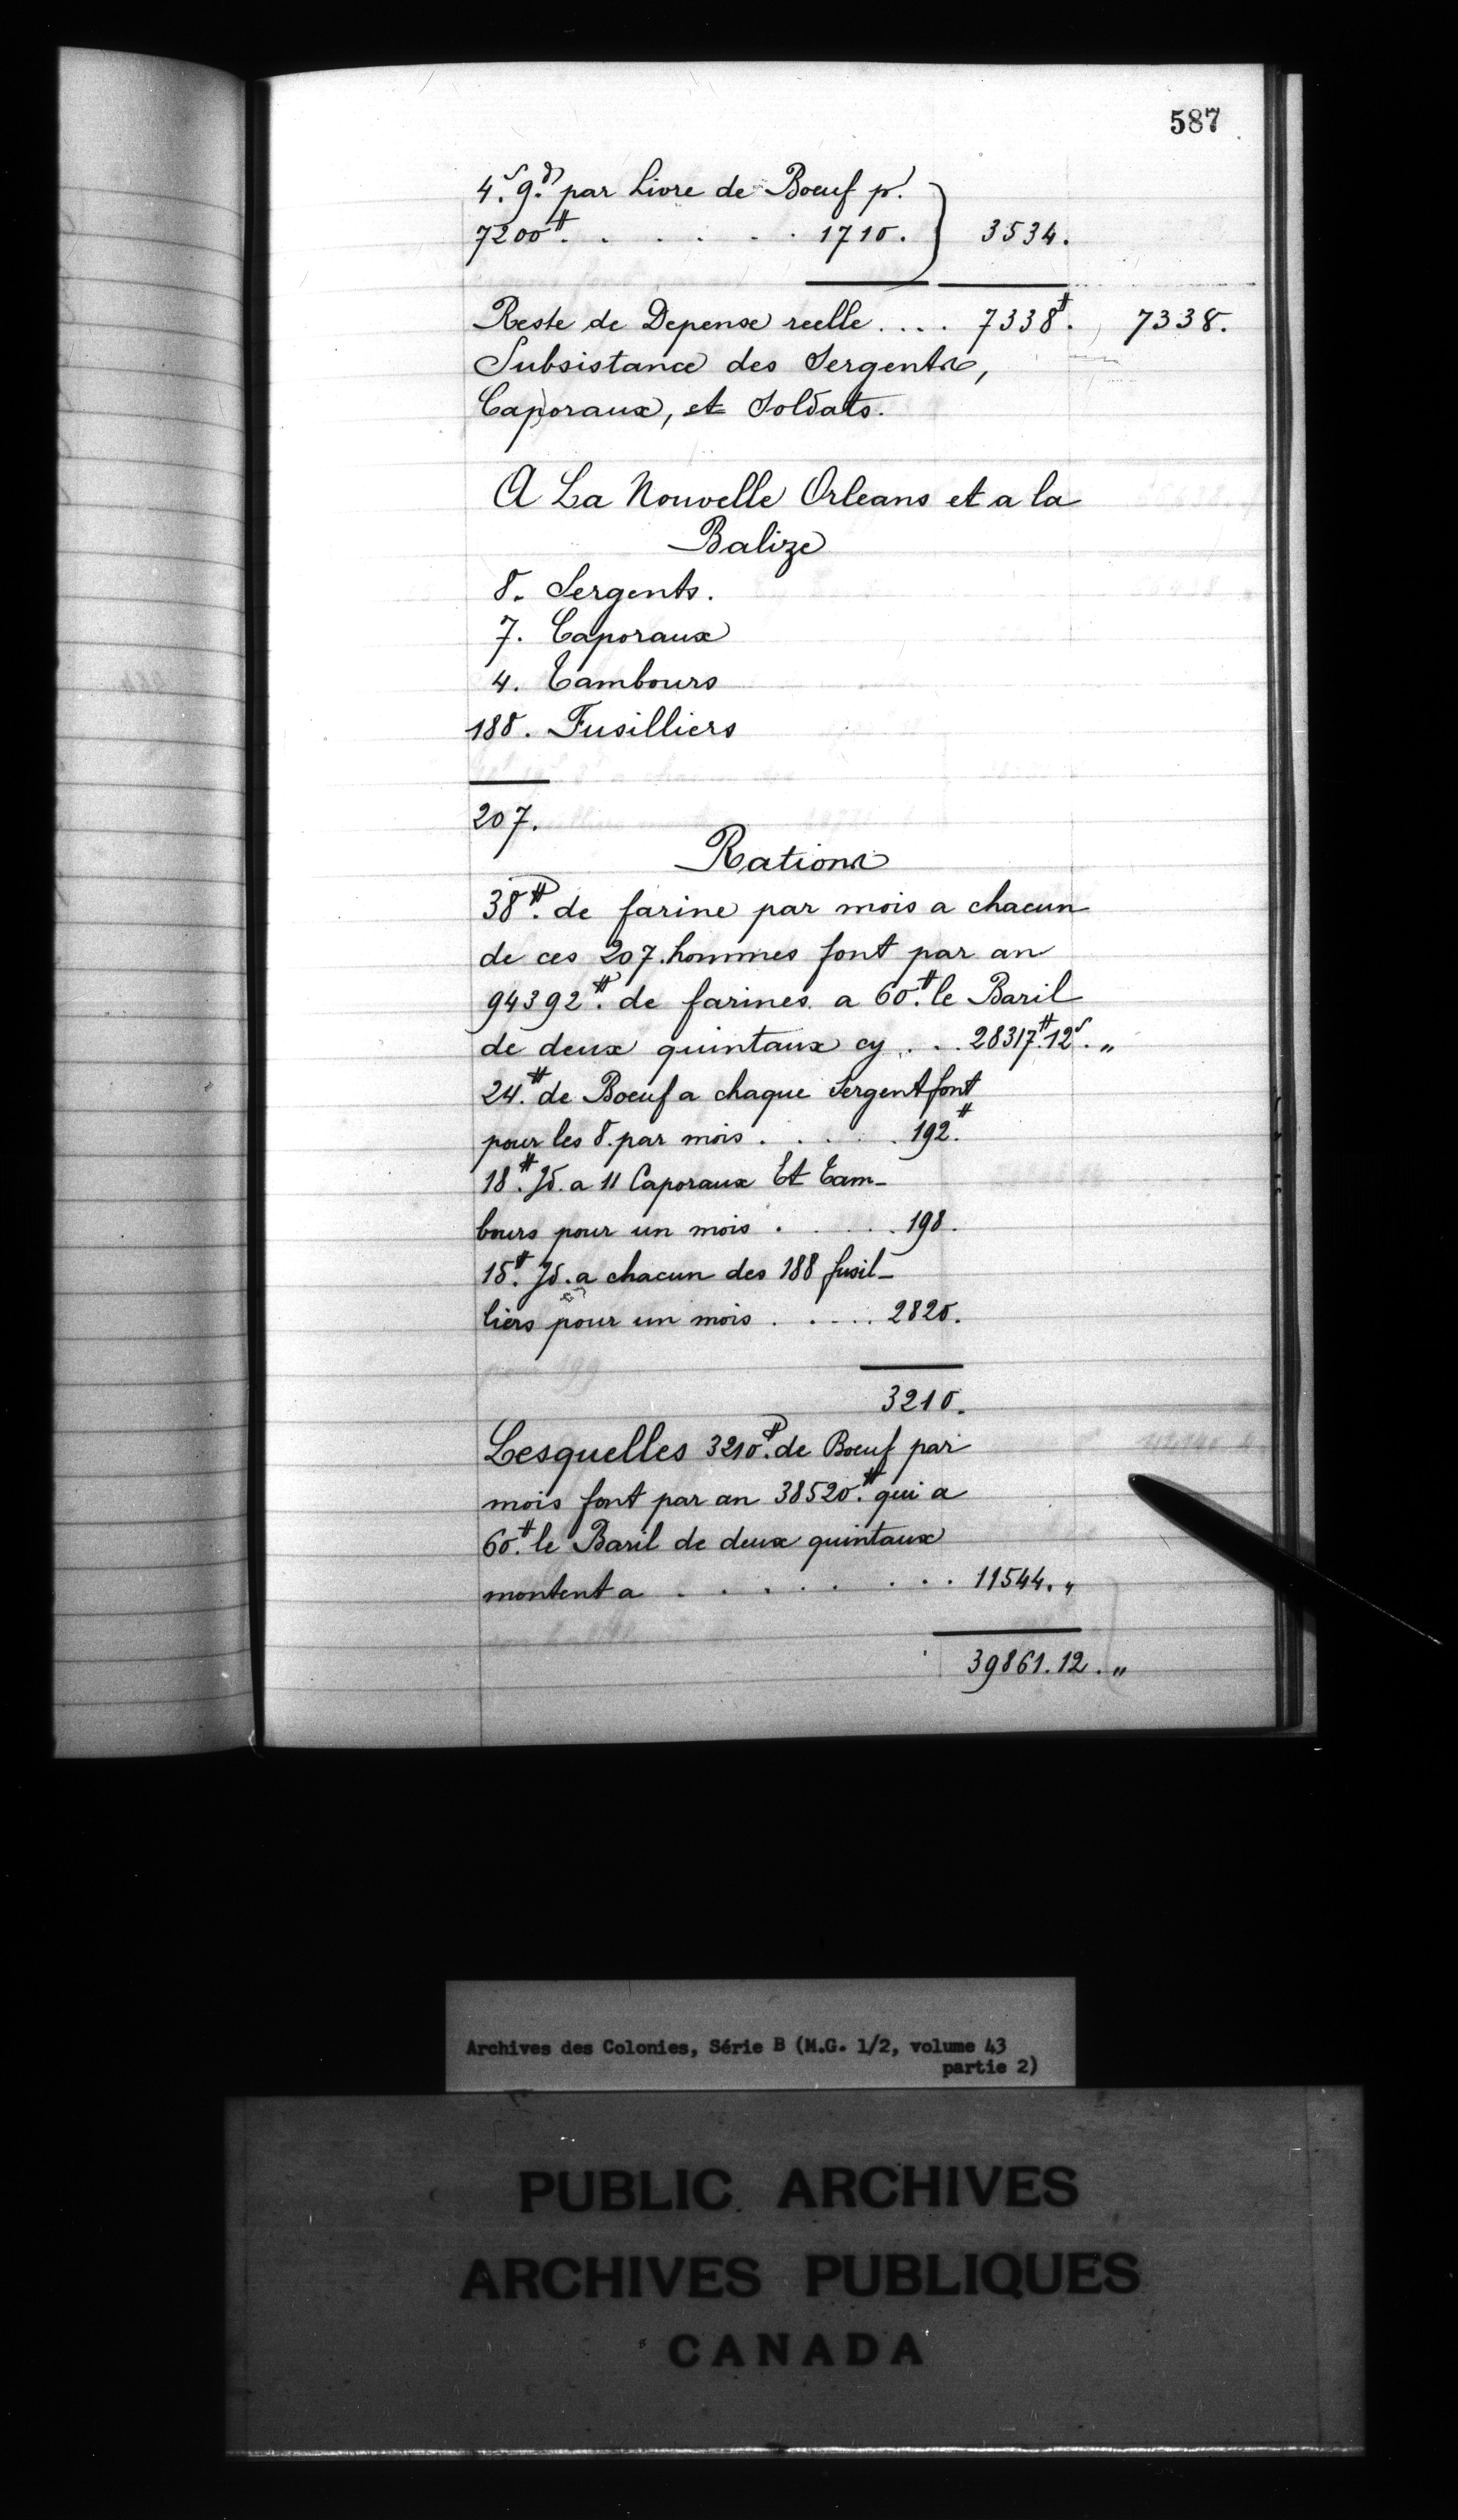 587
4.s 9.d par Livre de Boeuf pr.
7200#. . . . . . 1710. } 3534.
Reste de Depense reelle . . . . 7338#. 7338.
Subsistance des Sergents,
Caporaux, et Soldats.
A La Nouvelle Orleans et a la
Balize
8. Sergents.
7. Caporaux
4. Tambours
188. Fusilliers
207.
Rations
38#. de farine par mois a chacun
de ces 207. hommes font par an
94392#. de farines a 60.# le Baril
de deux quintaux cy . . . 28317.# 12s. „
24.# de Boeuf a chaque Sergent font
pour les 8. par mois . . . . . 192.#
18.# Id. a 11 Caporaux Et Tam-
bours pour un mois . . . . . 198.
15.# Id. a chacun des 188 fusil-
liers pour un mois . . . . . 2820.
3210.
Lesquelles 3210.# de Boeuf par
mois font par an 38520.# qui a
60.# le Baril de deux quintaux
montent a . . . . . . . . 11544. „
39861. 12. „
Archives des Colonies, Série B (M.G. 1/2, volume 43
partie 2)
PUBLIC ARCHIVES
ARCHIVES PUBLIQUES
CANADA